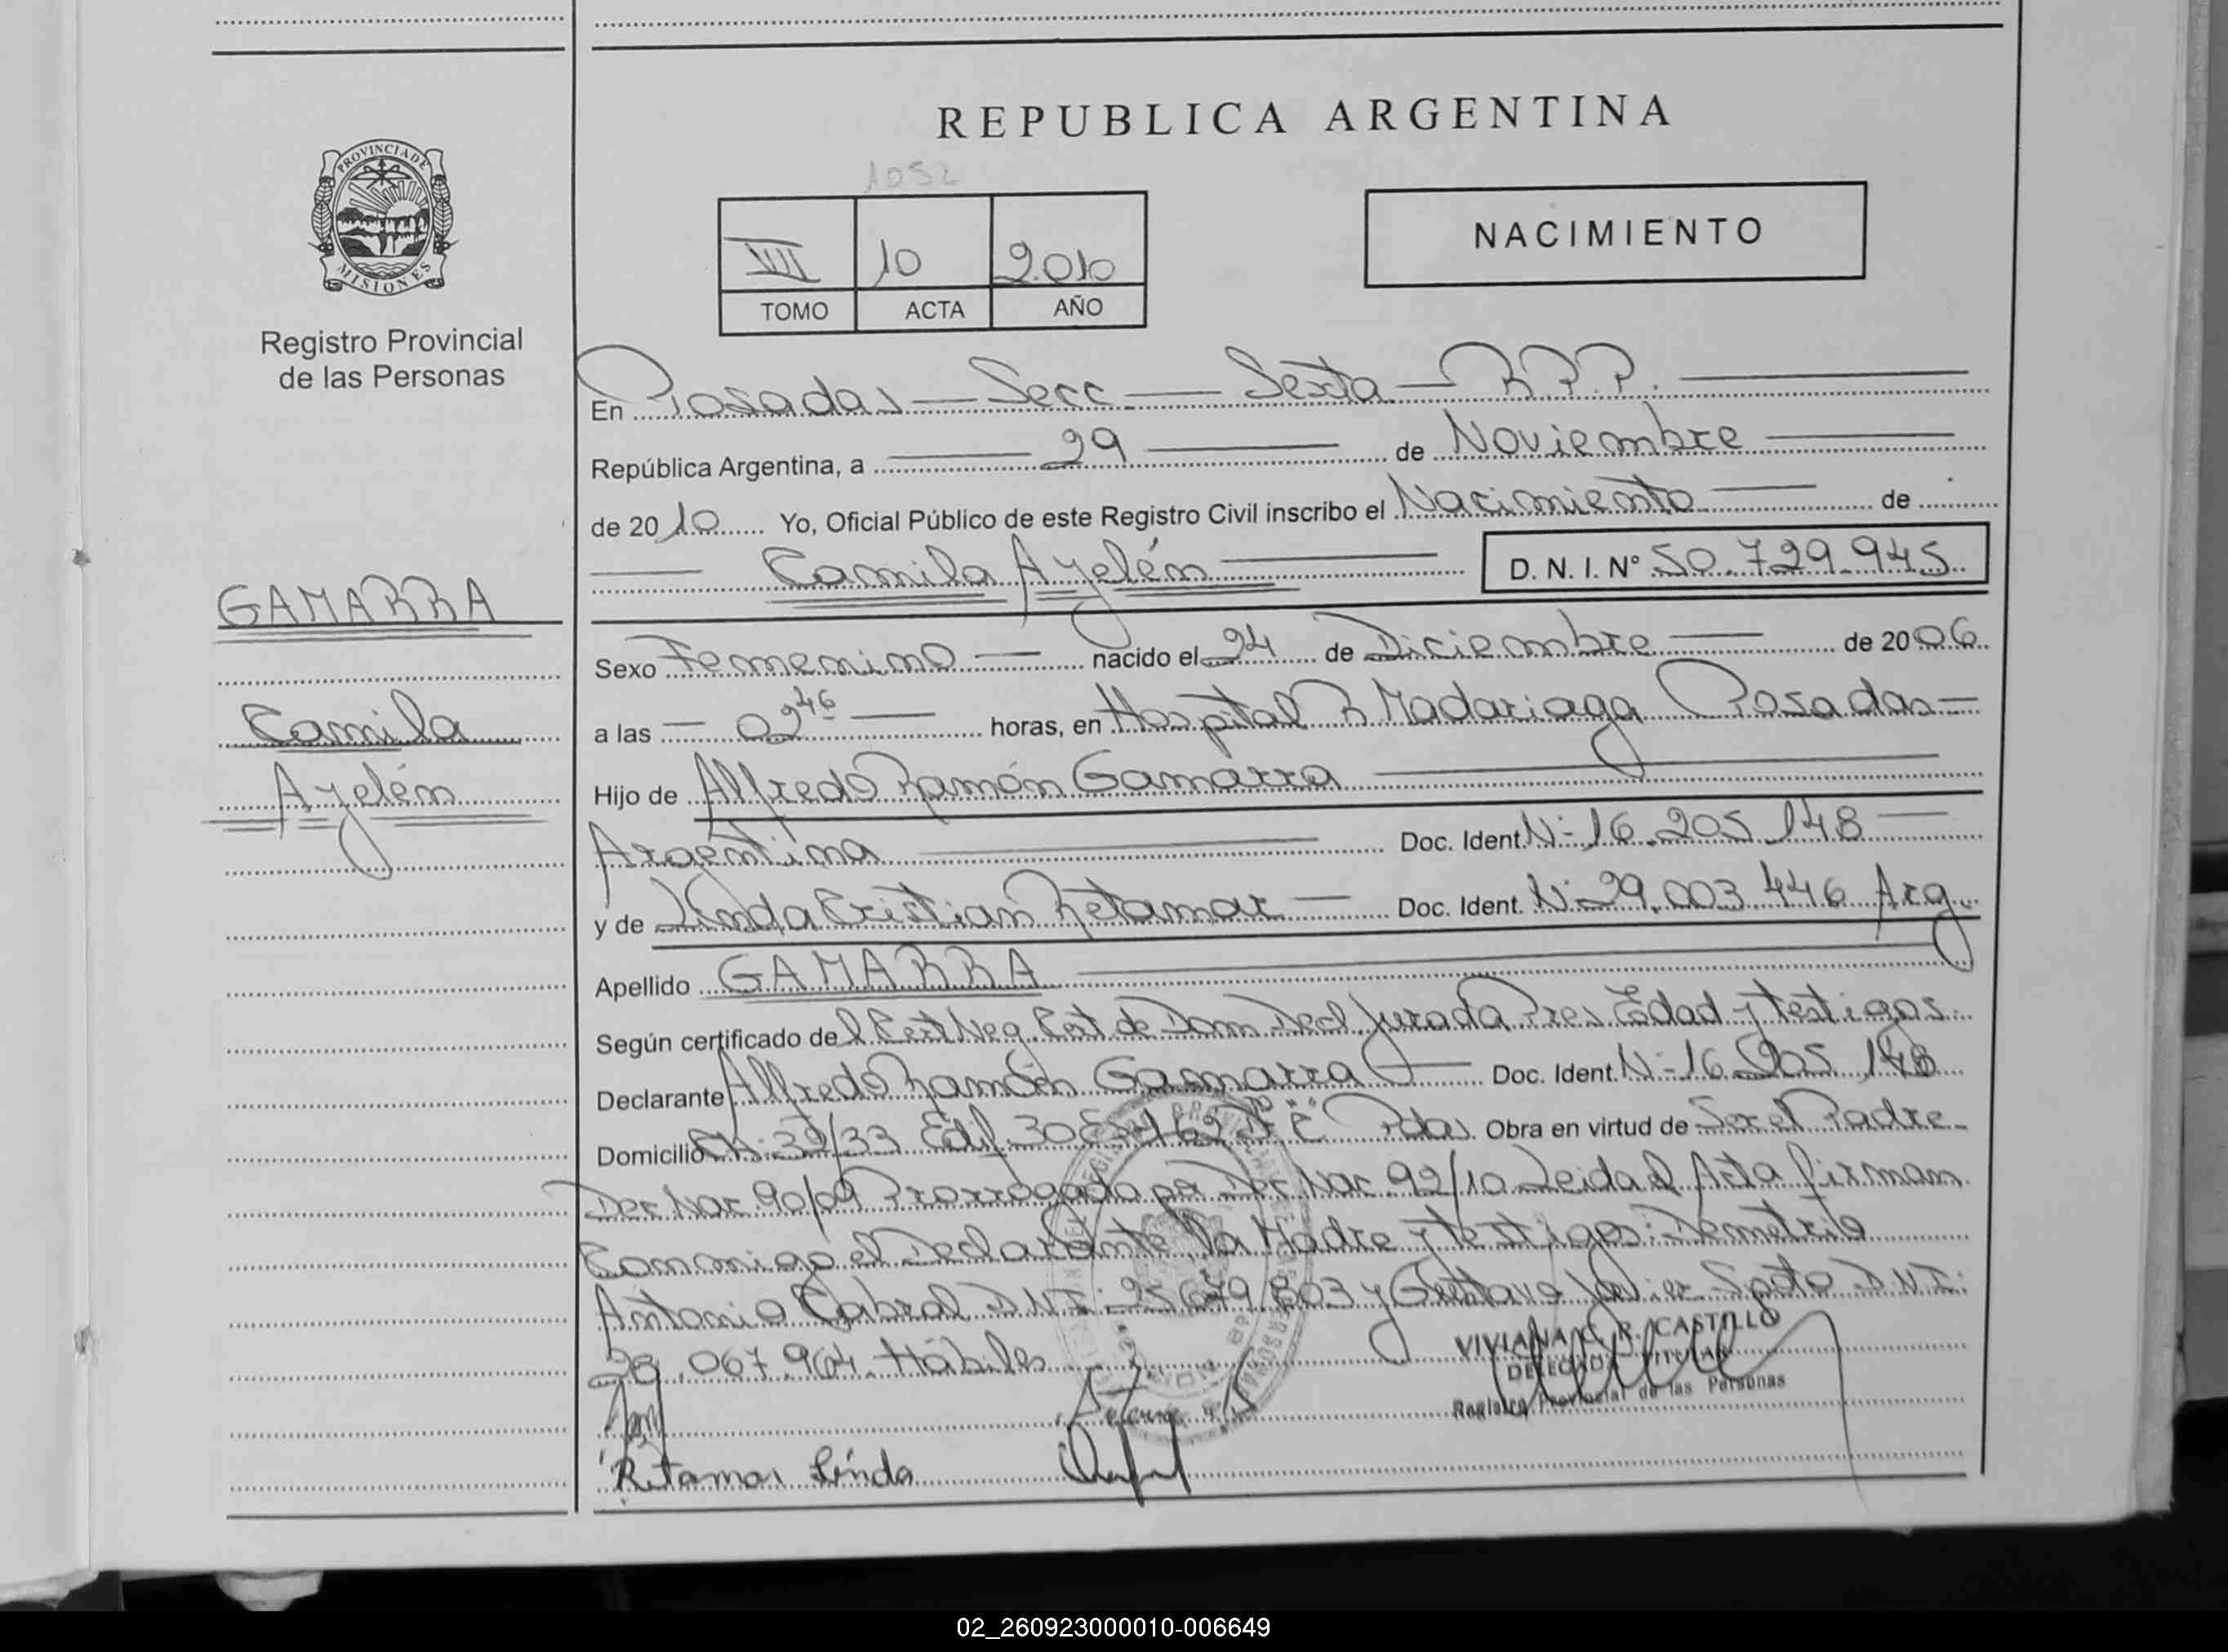 REPUBLICA ARGENTINA
1052
VII 10 2.010
TOMO ACTA AÑO
NACIMIENTO
PROVINCIA DE
MISIONES
Registro Provincial
de las Personas
En Posadas — Secc — Sexta — R.P.P.
República Argentina, a 29 de Noviembre
de 2010 Yo, Oficial Público de este Registro Civil inscribo el Nacimiento de
Camila Ayelén D. N. I. Nº 50.729.945
GAMARRA
Camila
Ayelén
Sexo Femenino — nacido el 24 de Diciembre de 2006
a las — 02 46 — horas, en Hospital R Madariaga Posadas —
Hijo de Alfredo Ramón Gamarra
Argentina Doc. Ident. Nº 16.205.148
y de Linda Cristian Retamar — Doc. Ident. Nº 29.003.446 Arg.
Apellido GAMARRA
Según certificado de l Cert Neg. Cert de Dom Decl Jurada Pres Edad y testigos.
Declarante Alfredo Ramón Gamarra Doc. Ident. Nº 16.205.148
Domicilio CH. 32/33 Edif. 30 "C" Pdas Obra en virtud de Ser el Padre
Dec Nac 90/09 Prorrogado por Dec Nac 92/10 Leida el Acta firman
Conmigo el Declarante la Madre y testigos: Demetrio
Antonio Cabral D N I: 25.679.803 y Gustavo Javier Soto D N I:
28.067.964. Hábiles
VIVIANA C. R. CASTILLO
DELEGADA TITULAR
Registro Provincial de las Personas
Retamar Linda
02_260923000010-006649